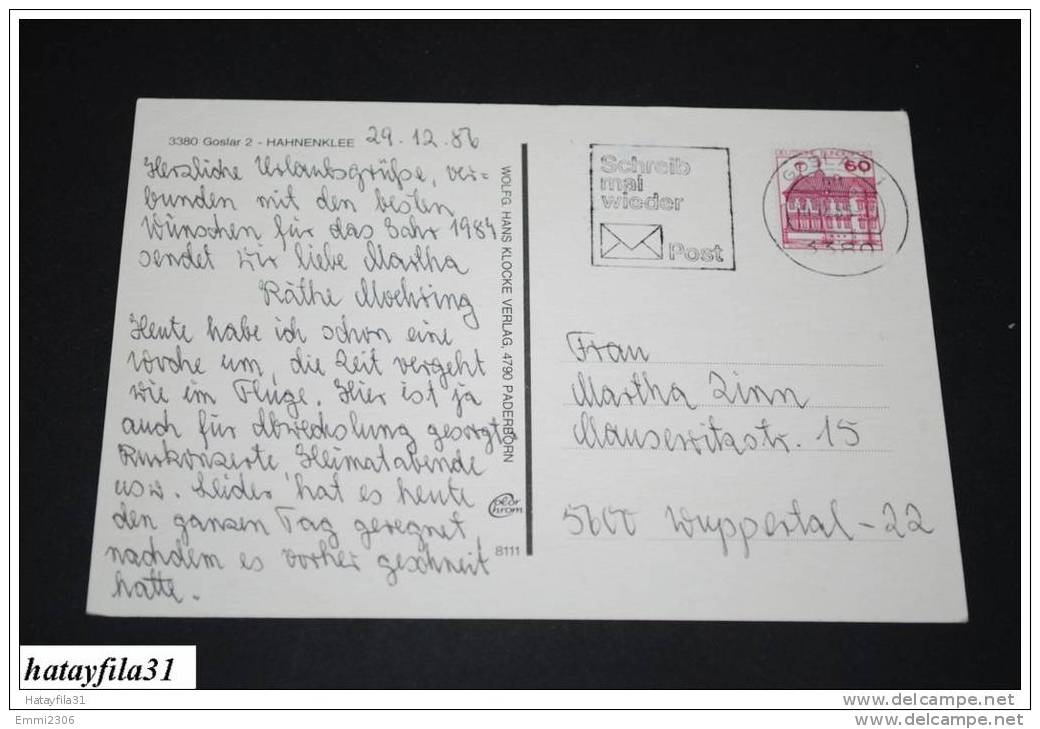 3380 Goslar 2 - HAHNENKLEE 29.12.86
Herzliche Urlaubsgrüße, ver=
bunden mit den besten
Wünschen für das Jahr 1987
sendet dir liebe Martha
Käthe Moehring
Heute habe ich schon eine
Woche um, die Zeit vergeht
wie im Fluge. Hier ist ja
auch für Abwechslung gesorgt,
Kurkonzerte, Heimatabende
usw. Leider hat es heute
den ganzen Tag geregnet,
nachdem es vorher geschneit
hatte.
WOLFG. HANS KLOCKE VERLAG, 4790 PADERBORN
Color
chrom
8111
Schreib
mal
wieder
Post
DEUTSCHE BUNDESPOST
60
Frau
Martha Zinn
15
5600 Wuppertal-22
hatayfila31
Hatayfila31
Emmi2306
www.delcampe.net
www.delcampe.net